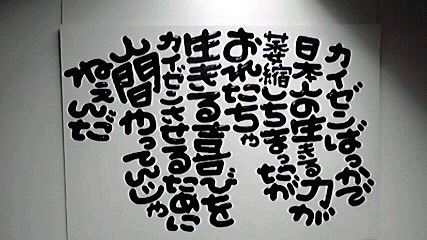 カイゼンばっかで
日本人の生きる力が
萎縮しちまったが
おれたちゃ
生きる喜びを
カイゼンさせるために
人間やってんじゃ
ねぇんだ